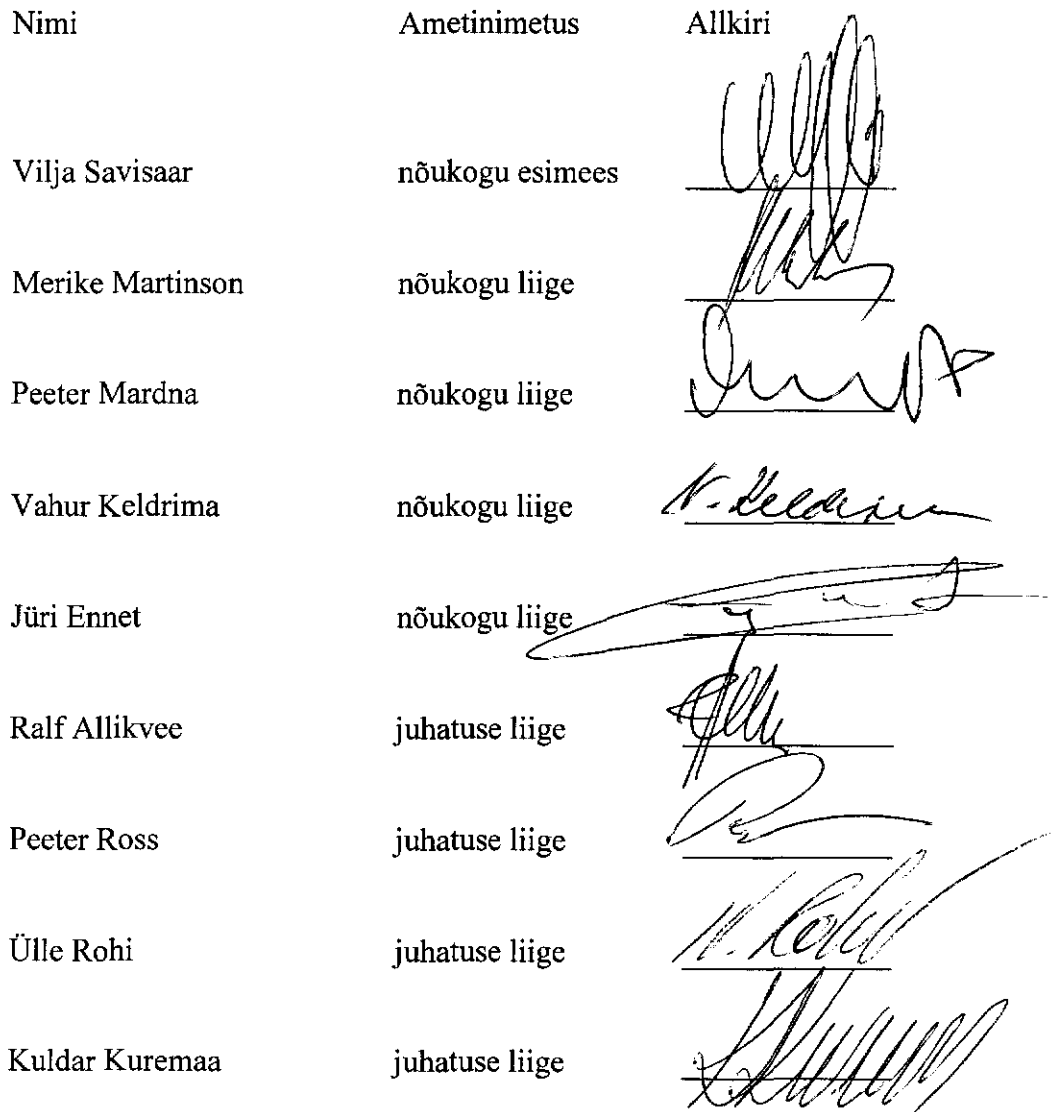 Nimi Ametinimetus Allkiri
Vilja Savisaar nõukogu esimees
Merike Martinson nõukogu liige
Peeter Mardna nõukogu liige
Vahur Keldrima nõukogu liige V. Keldrima
Jüri Ennet nõukogu liige
Ralf Allikvee juhatuse liige
Peeter Ross juhatuse liige
Ülle Rohi juhatuse liige
Kuldar Kuremaa juhatuse liige